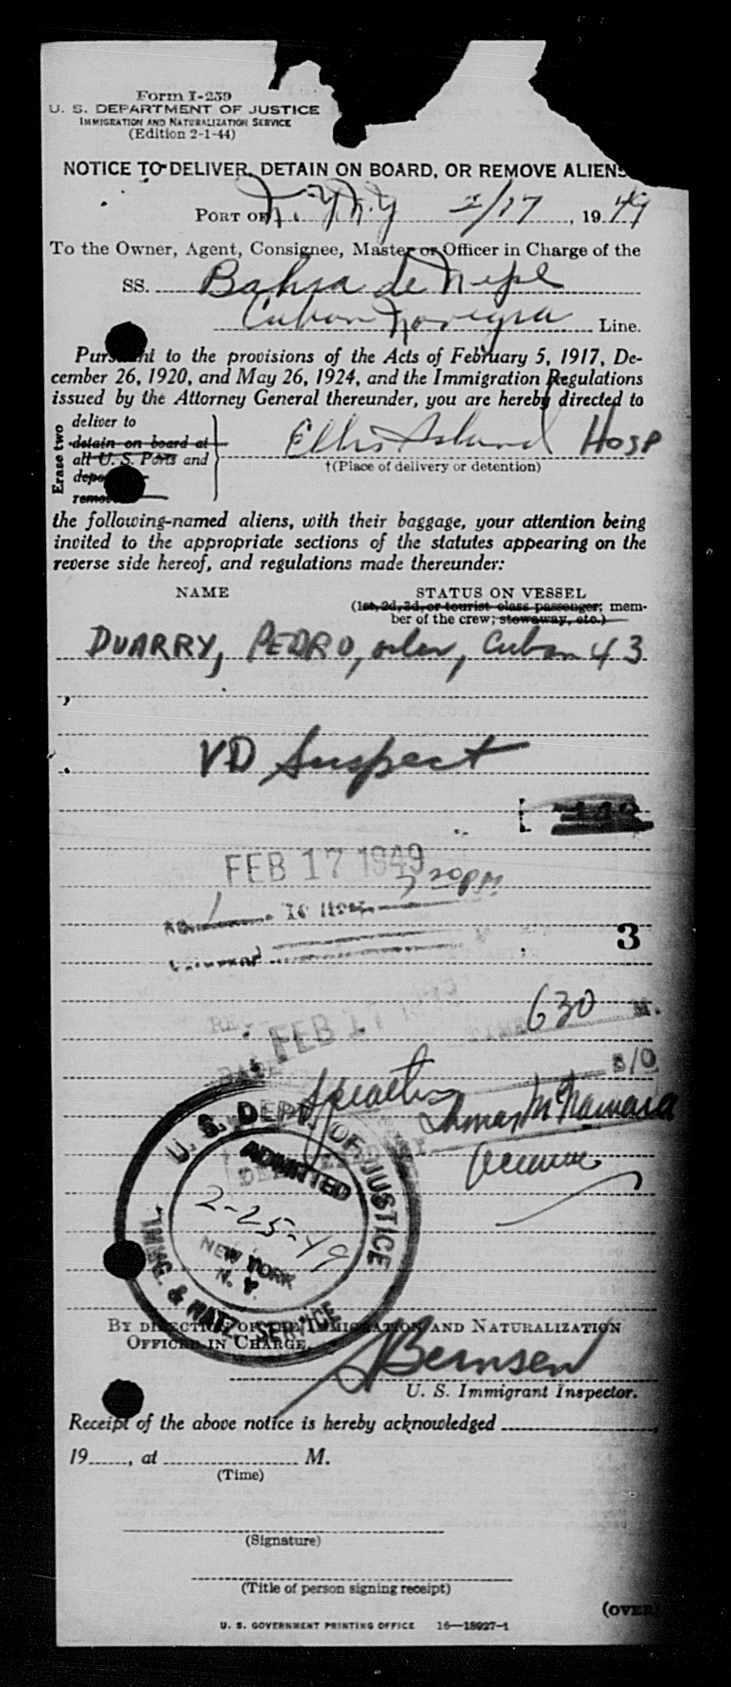 Form I-259
U. S. DEPARTMENT OF JUSTICE
IMMIGRATION AND NATURALIZATION SERVICE
(Edition 2-1-44)
NOTICE TO DELIVER, DETAIN ON BOARD, OR REMOVE ALIENS
PORT OF N.Y. N.Y 2/17, 1949
To the Owner, Agent, Consignee, Master or Officer in Charge of the
SS. Bahia de Nipe
Cuban Line.
Pursuant to the provisions of the Acts of February 5, 1917, De-
cember 26, 1920, and May 26, 1924, and the Immigration Regulations
issued by the Attorney General thereunder, you are hereby directed to
Erase two
deliver to
detain on board at
all U. S. Ports and
Ellis Island Hosp
†(Place of delivery or detention)
the following-named aliens, with their baggage, your attention being
invited to the appropriate sections of the statutes appearing on the
reverse side hereof, and regulations made thereunder:
NAME STATUS ON VESSEL
(1st, 2d, 3d, or tourist class passenger; mem-
ber of the crew; stowaway, etc.)
DUARRY, PEDRO, oiler, Cuban 43
VD Suspect
FEB 17 1949
7 20 PM
3
FEB 17
630 M.
Thomas McNamara
U. S. DEPT. OF JUSTICE
ADMITTED
2-25-49
NEW YORK
N. Y.
IMMIG. & NATZ. SERVICE
BY DIRECTION OF THE IMMIGRATION AND NATURALIZATION
OFFICER IN CHARGE.
Bernsen
U. S. Immigrant Inspector.
Receipt of the above notice is hereby acknowledged
19, at M.
(Time)
(Signature)
(Title of person signing receipt)
(OVER)
U. S. GOVERNMENT PRINTING OFFICE 16—18927-1